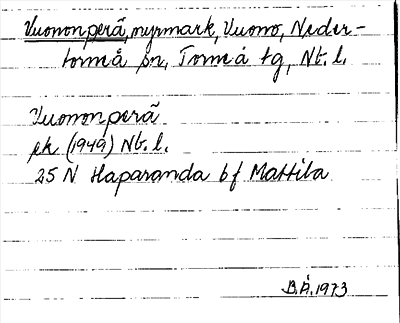 Vuononperä, nyrmark, Vuono, Neder-
torneå sn, Torneå tg, Nb. l.
Vuononperä
ek (1949) Nb. l.
25 N Haparanda bf Mattila
B.Å. 1973